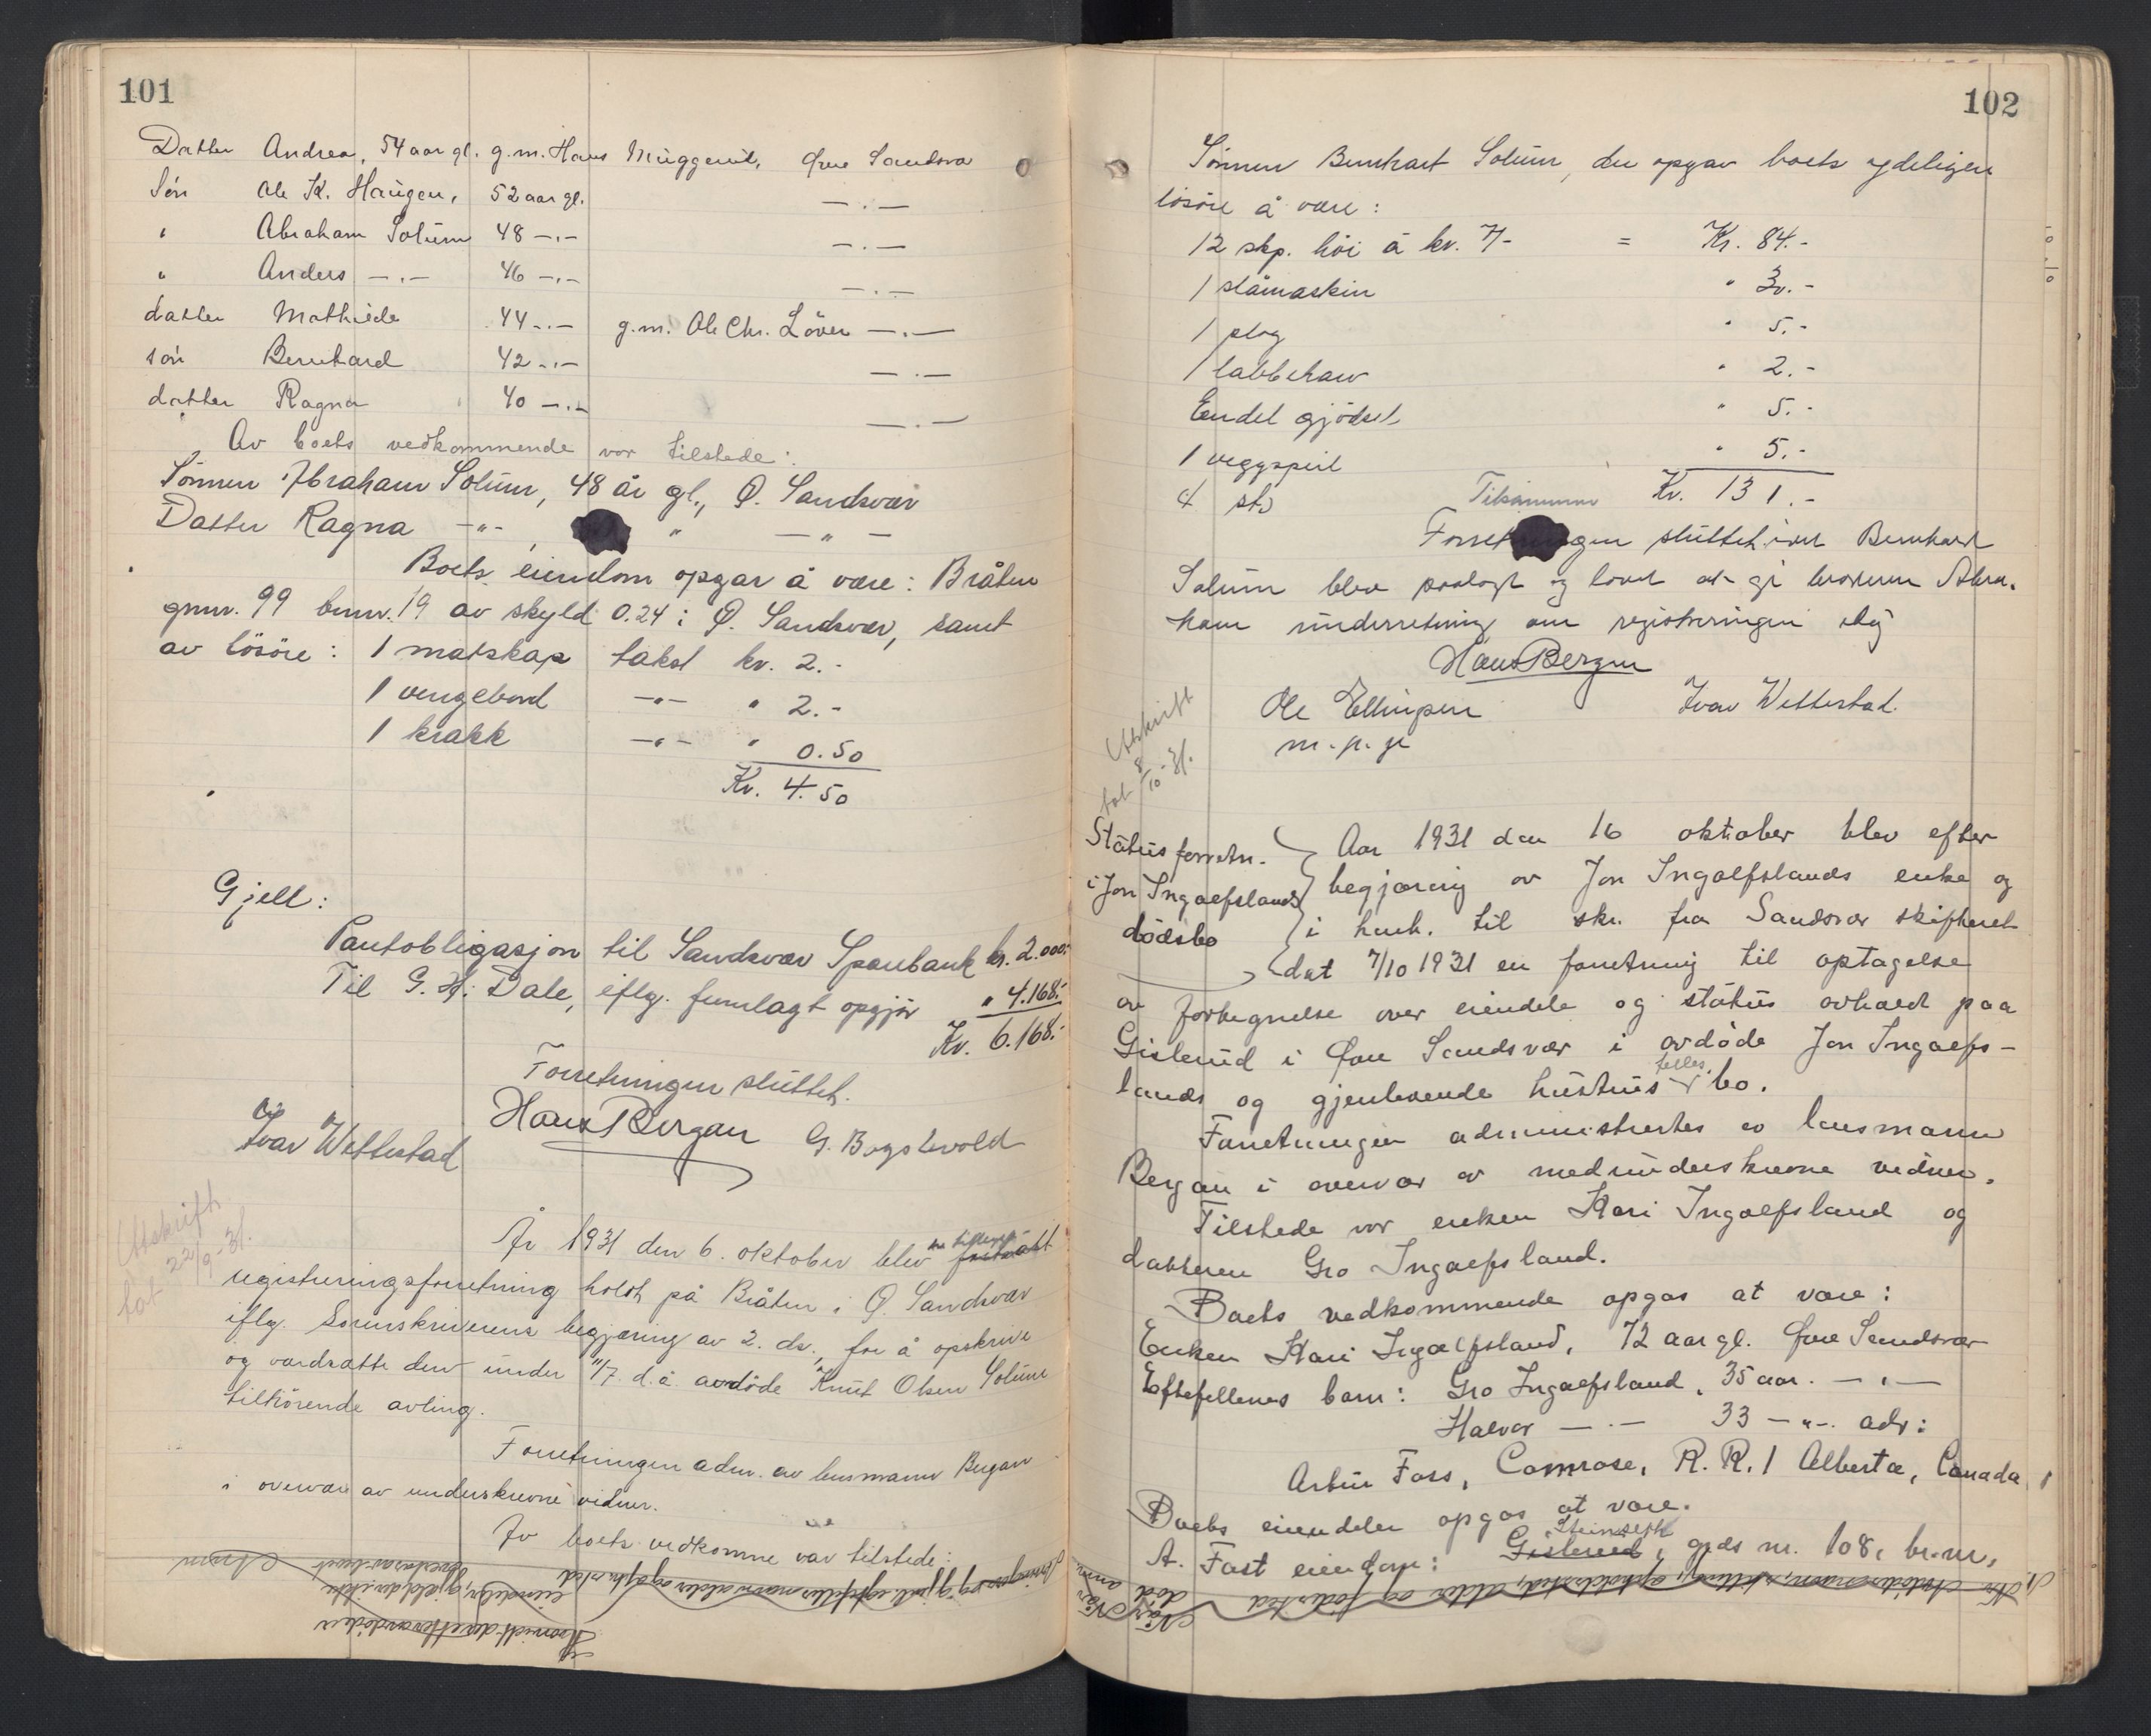 101
Datter Andrea, 54 aar gl. g.m. Hans Muggerud, Øvre Sandsvær
Søn Ole K. Haugen, 52 aar gl. —.—
" Abraham Solum 48 —.— —.—
" Anders —.— 46 —.— —.—
datter Mathilde 44 —.— g.m. Ole Chr. Löver —.—
søn Bernhard 42 —.— —.—
datter Ragna 40 —.— —.—
Av boets vedkommende var tilstede:
Sønnen Abraham Solum, 48 år gl., Ø. Sandsvær
Datter Ragna —"—, " —"—
Boets eiendom opgav å være: Bråten
gnr. 99 bnr. 19 av skyld 0.24 i Ø. Sandsvær, samt
av lösöre: 1 matskap takst kr. 2.-
1 vengebord —"— " 2.-
1 krakk —"— " 0.50
Kr. 4.50
Gjell:
Pantobligasjon til Sandsvær Sparebank kr. 2.000.-
Til G. H. Dale, iflg. fremlagt opgjör " 4.168.-
Kr. 6.168.-
Forretningen sluttet.
Hans Bergan
Ivar Wettestad G. Bogstevold
Utskrift
tat 22/9-31.
År 1931 den 6. oktober blev fortsatt
registreringsforretning holdt på Bråten i Ø. Sandsvær
iflg. Sorenskriverens begjæring av 2. ds., for å opskrive
og verdsætte den under 11/7 d.å. avdöde Knut Olsen Solum
tilhörende avling.
Forretningen adm. av lensmann Bergan
i overvær av underskrevne vidner.
Av boets vedkomne var tilstede:
102
Sønnen Bernhart Solum, der opgav boets ydeligere
lösöre å være:
12 skp. höi á kr. 7- = Kr. 84.-
1 slåmaskin " 30.-
1 plog " 5.-
1 labbeharv " 2.-
Endel gjödsel " 5.-
1 veggspeil " 5.-
4 st. Tilsammen Kr. 131.-
Forretningen sluttet idet Bernhard
Solum blev paalagt og lovet at gi broderen Abra-
ham underretning om registreringen
Hans Bergan
Ole Ellingsen Ivar Wettestad.
m.p.p.
Utskrift
tat 8/10-31.
Status forretn.
i Jon Ingolfslands
dödsbo
Aar 1931 den 16 oktober blev efter
begjæring av Jon Ingolfslands enke og
i henh. til skr. fra Sandsvær skifteret
dat 7/10 1931 en forretning til optagelse
av fortegnelse over eiendele og status avholdt paa
Gislerud i Øvre Sandsvær i avdöde Jon Ingolfs-
lands og gjenlevende hustrus felles bo.
Forretningen administrertes av lensmann
Bergan i overvær av medunderskrevne vidner.
Tilstede var enken Kari Ingolfsland og
datteren Gro Ingolfsland.
Boets vedkommende opgas at være:
Enken Kari Ingolfsland, 72 aar gl. Øvre Sandsvær
Eftefellenes barn: Gro Ingolfsland, 35 aar. —.—
Halvor —.— 33 —"—. adr:
Artur Foss, Comrose, R.R.1 Alberta, Canada
Boets eiendeler opgas at være.
A. Fast eiendom: Gislerud Steinseth, grds nr. 108, br.nr.